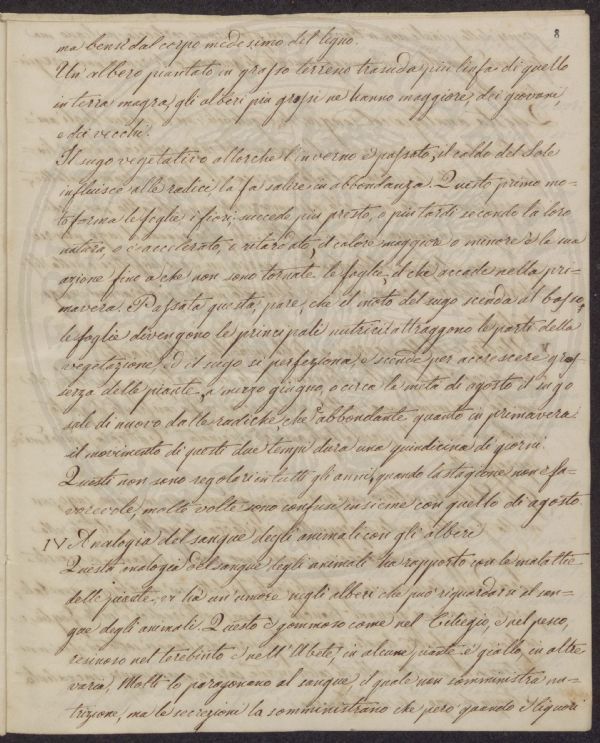 8
ma bensì dal corpo medesimo del legno.
Un' albero piantato in grasso terreno trasuda più linfa di quello
in terra magra, gli alberi più grossi ne hanno maggiore, dei giovani,
e dei vecchi.
Il sugo vegetativo allorche l'inverno è passato, il caldo del Sole
influisce alle radici la fa salire in abbondanza. Questo primo mo-
to forma le foglie i fiori, succede più presto, o più tardi secondo la loro
natura, o è accelerato, e ritardato, il calore maggiore o minore è la sua
azione fino a che non sono tornate le foglie, il che accade nella pri-
mavera. Passata questa, pare, che il moto del sugo scenda al basso,
le foglie divengono le principali nutrici attraggono le parti della
vegetazione, ed il sugo si perfeziona, e scende per accrescere gros-
sezza delle piante, a mezzo giugno, o circa la metà di agosto il sugo
sale di nuovo dalle radiche, che è abbondante quanto in primavera
il movimento di questi due tempi dura una quindicina di giorni.
Questi non sono regolari in tutti gli anni, quando la stagione non è fa-
vorevole, molte volte sono confusi insieme con quello di agosto.
IV Analogia del sangue degli animali con gli alberi
Questa analogia del sangue degli animali ha rapporto con le malattie
delle piante, vi ha un' umore negli alberi che può riguardarsi il san-
gue degli animali. Questo è gommoso come nel Ciliegio, e nel pesco,
resinoso nel terebinto e nell'Abete, in alcune piante è giallo, in altre
varia, Molti lo paragonano al sangue il quale non somministra nu-
trizione, ma le secrezioni la somministrano che però quando è liquori